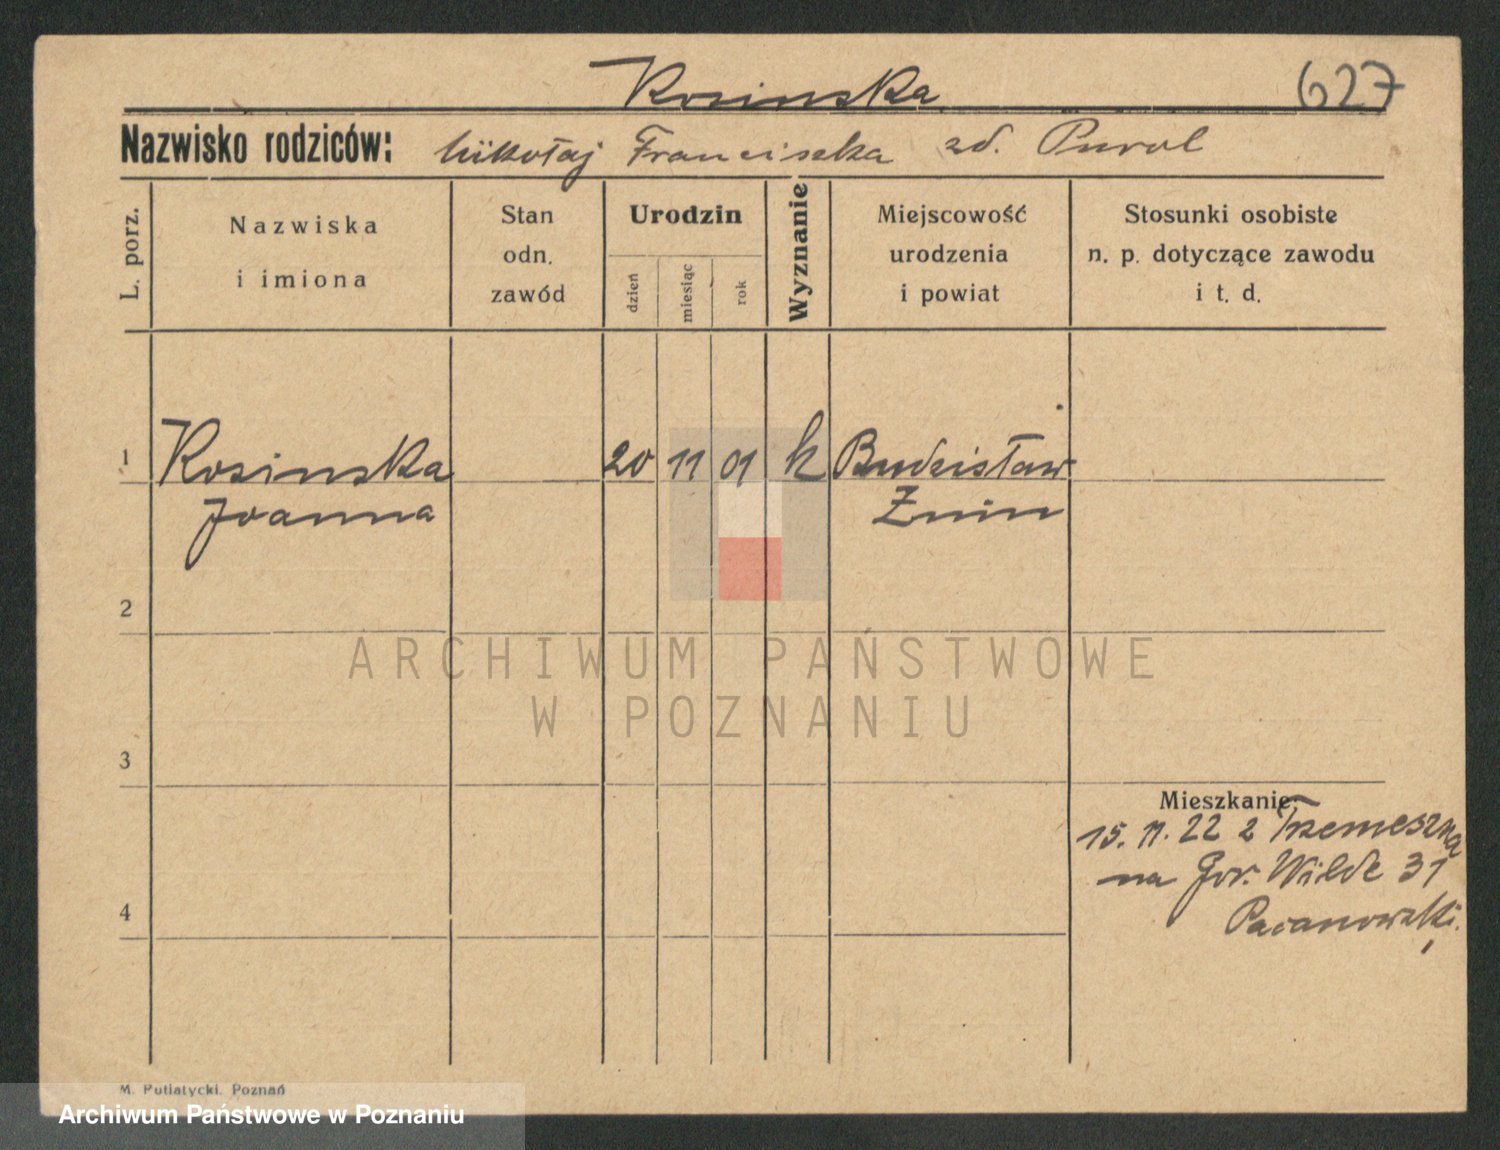 Kosinska
627
Nazwisko rodziców: Mikołaj Franciszka zd. Purol
L. porz.
Nazwiska
i imiona
Stan
odn.
zawód
Urodzin
dzień
miesiąc
rok
Wyznanie
Miejscowość
urodzenia
i powiat
Stosunki osobiste
n. p. dotyczące zawodu
i t. d.
1 Kosinska 20 11 01 k Budzisław
Joanna Żnin
2
3
4
Mieszkanie:
15. 11. 22 z Trzemeszna
na Gór. Wilde 31
Pacanowski.
ARCHIWUM PAŃSTWOWE
W POZNANIU
M. Putiatycki. Poznań
Archiwum Państwowe w Poznaniu